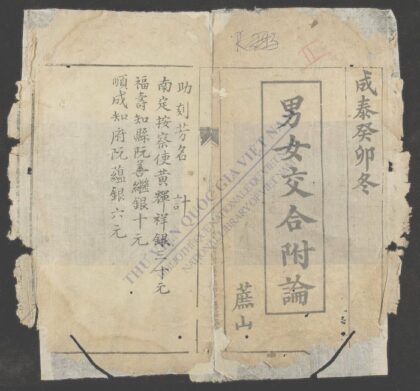 R.293
成泰癸卯冬
男女交合附論
蔗山
助刻芳名 計
南定按察使黃輝祥銀二十元
福壽知縣阮善繼銀十元
順成知府阮蘊銀六元
THƯ VIỆN QUỐC GIA VIỆT NAM
BIBLIOTHÈQUE NATIONALE DU VIETNAM
NATIONAL LIBRARY OF VIETNAM